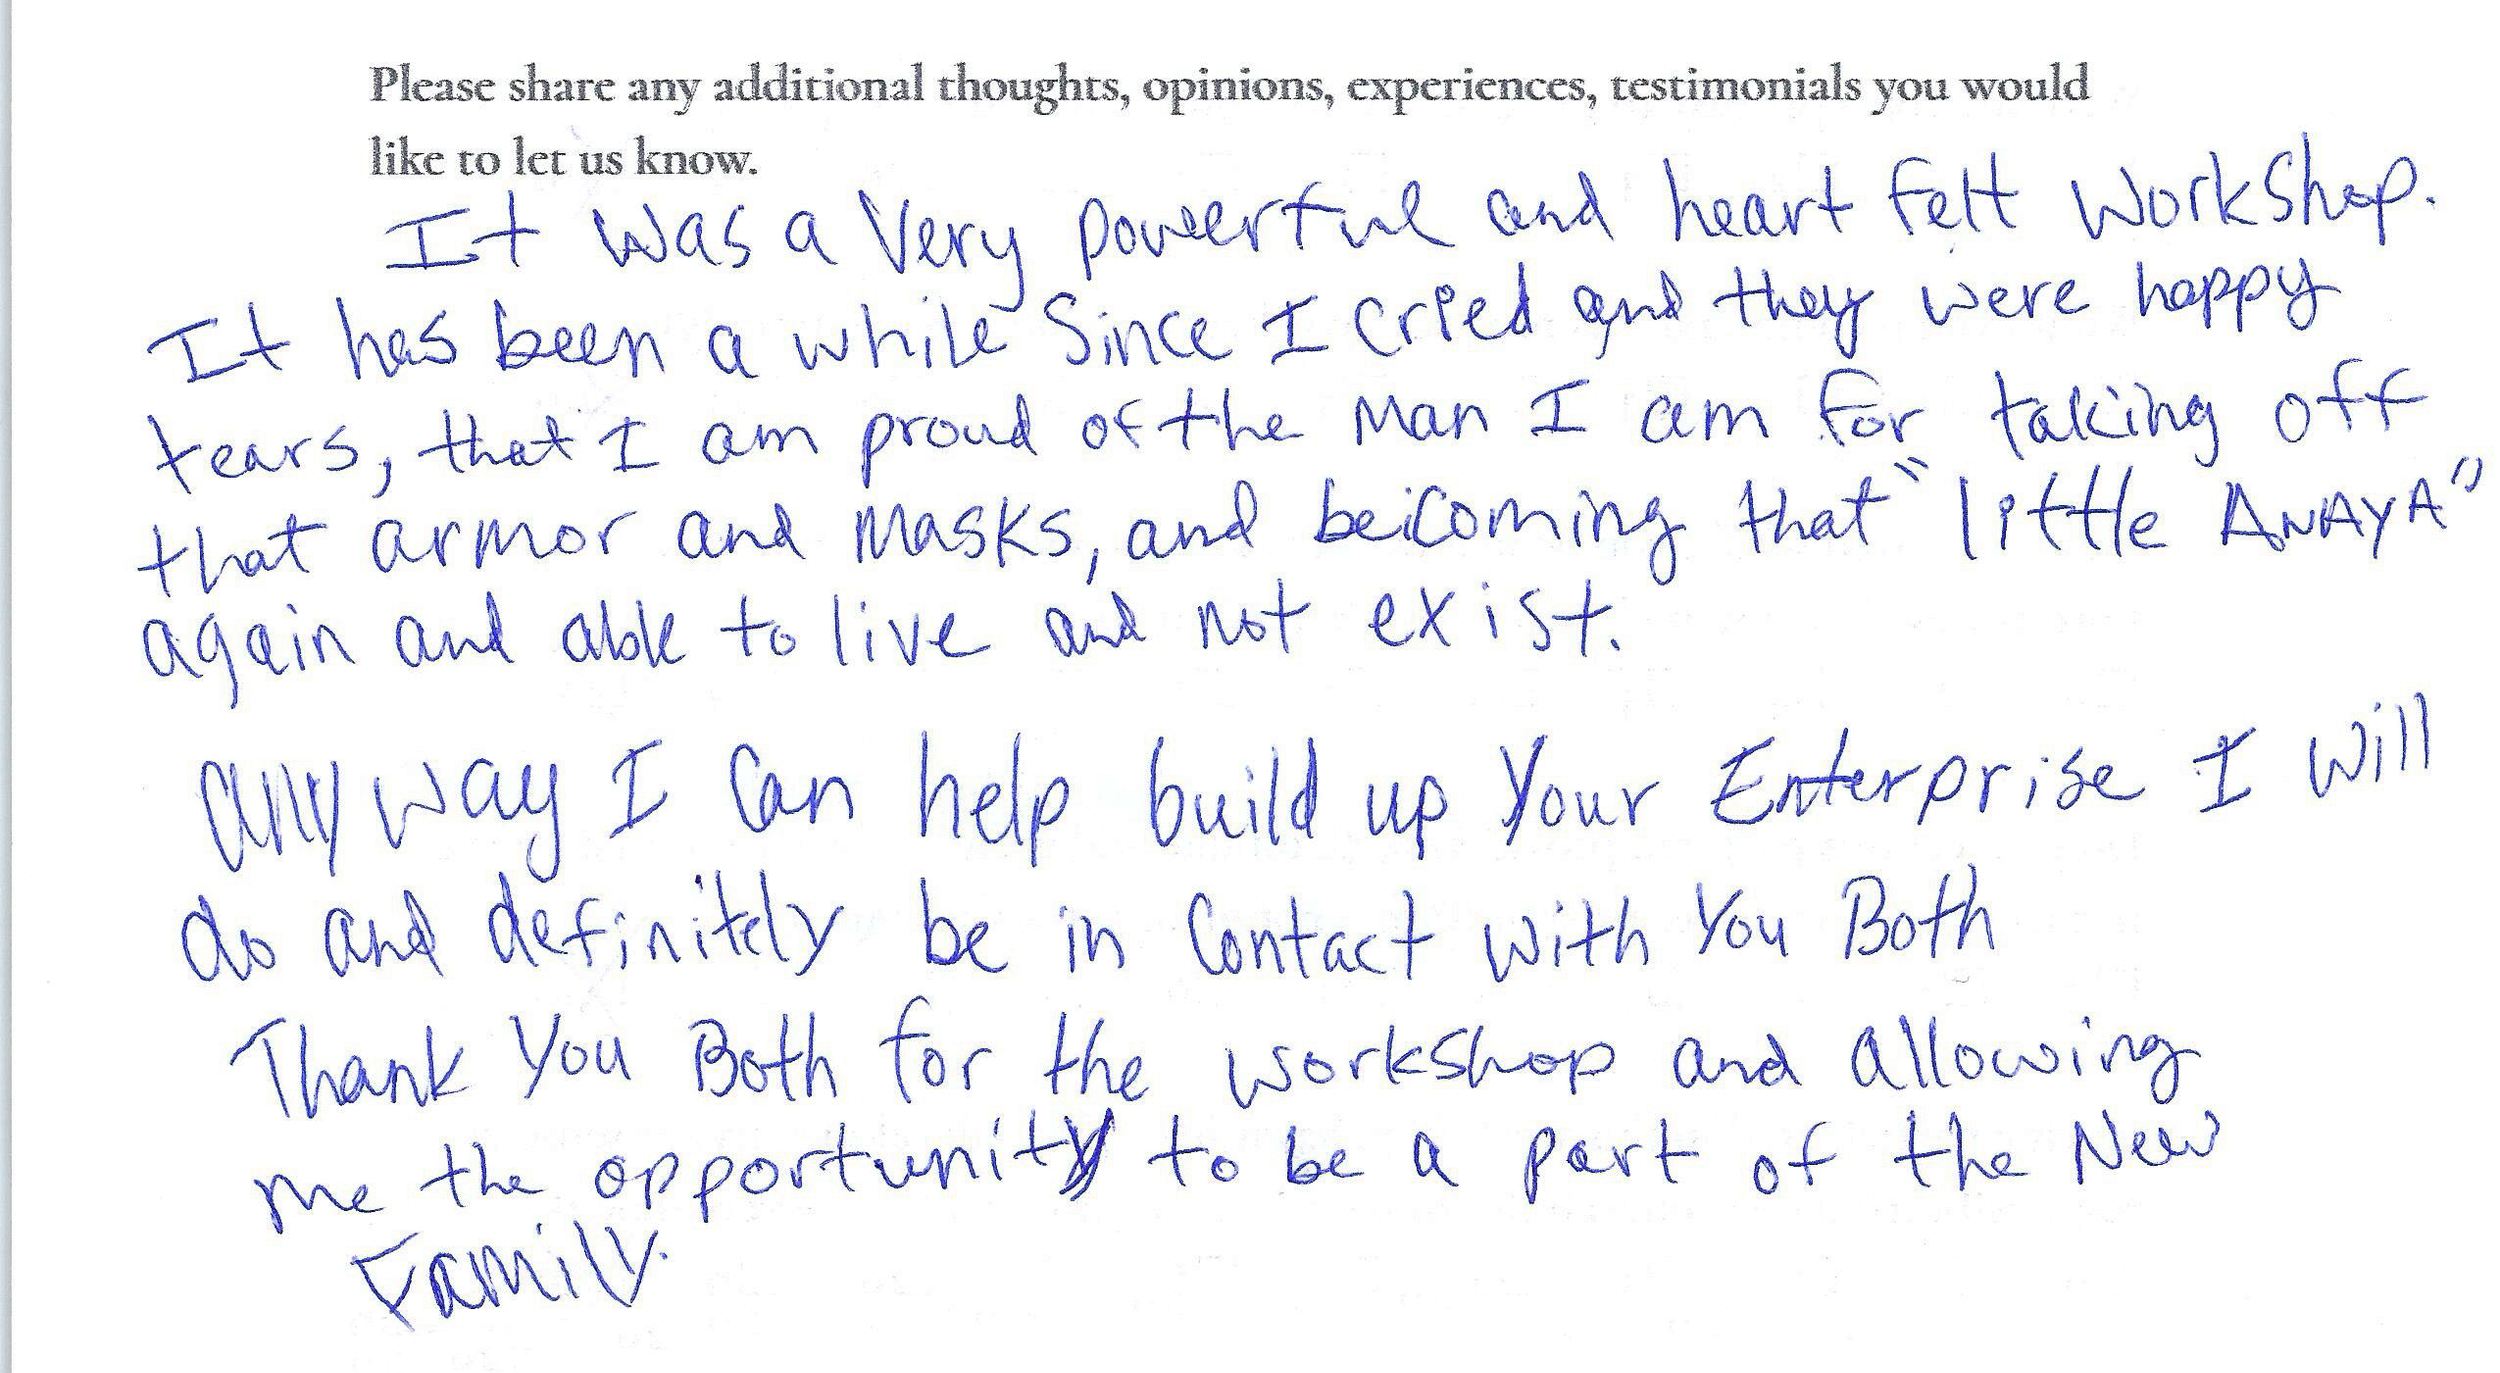 Please share any additional thoughts, opinions, experiences, testimonials you would
like to let us know.
It was a Very powerful and heart felt Workshop.
It has been a while Since I cried and they were happy
tears, that I am proud of the Man I am for taking off
that armor and Masks, and beicoming that "little ANAYA"
again and able to live and not exist.
any way I Can help build up Your Enterprise I will
do and definitely be in Contact with You Both
Thank You Both for the workshop and allowing
me the opportunity to be a part of the New
Family.